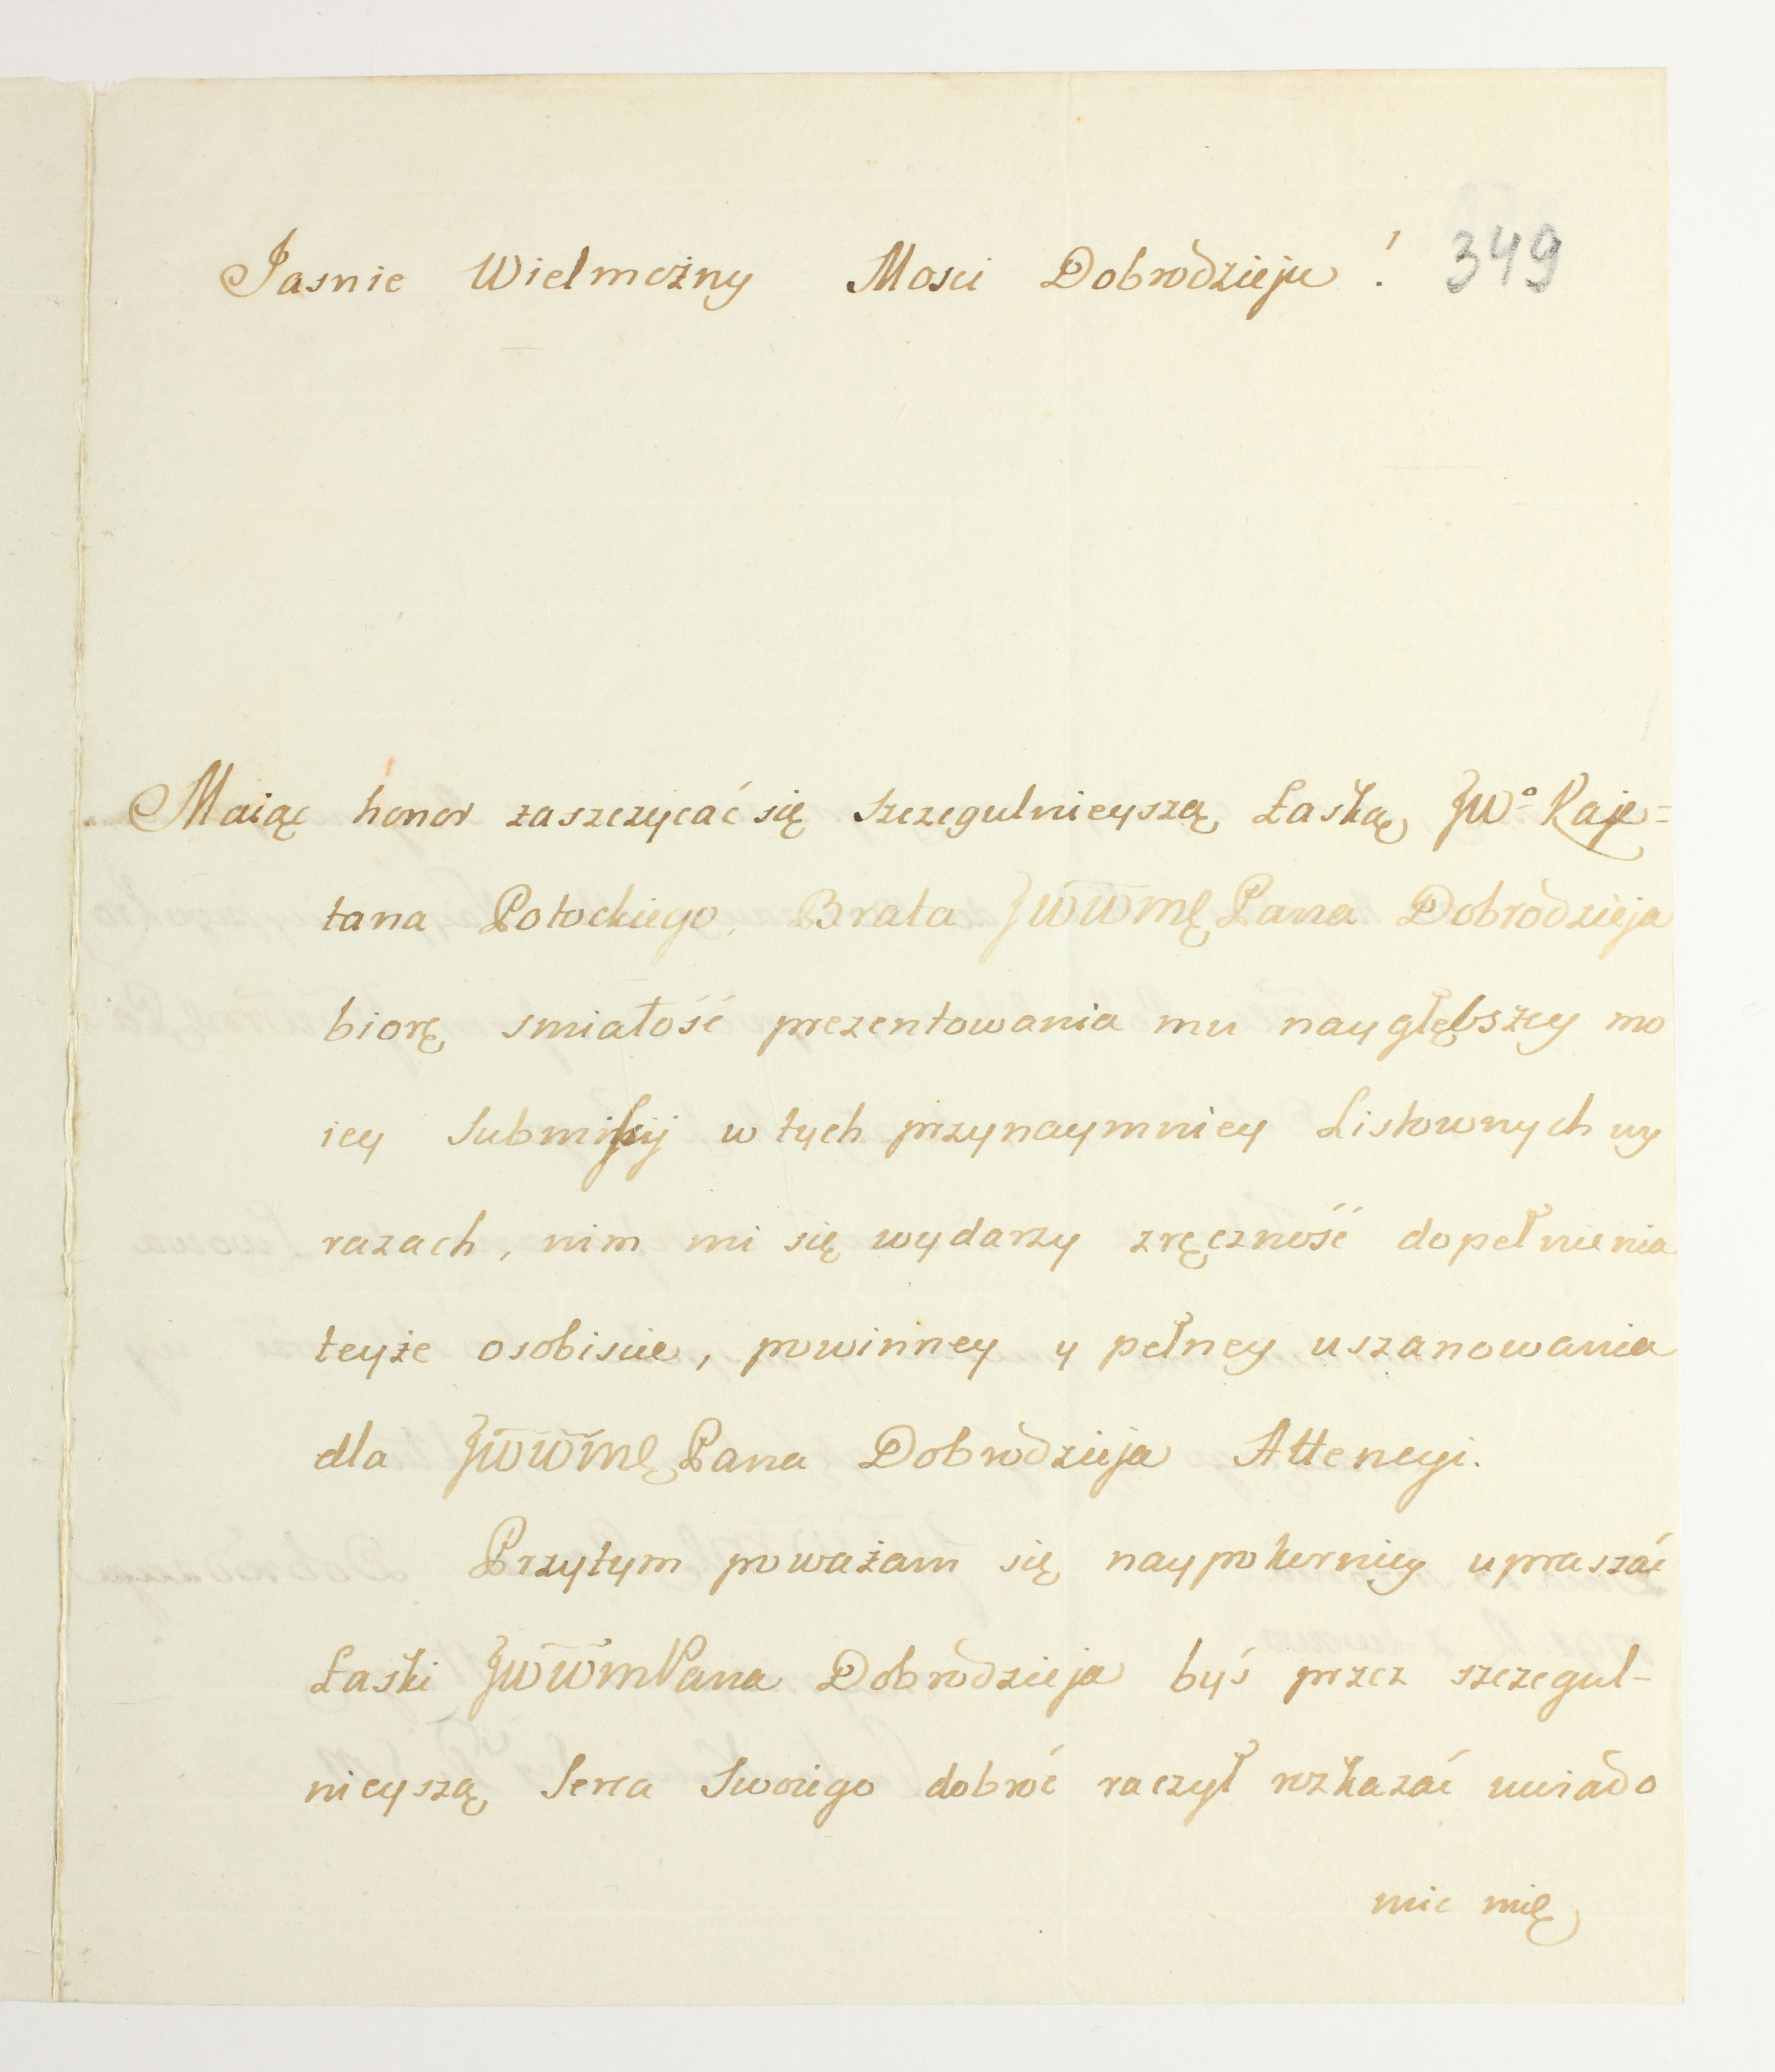 Jasnie Wielmożny Mosci Dobrodzieju! 349
Maiąc honor zaszczycać się szczegulnieyszą Łaską JWo Kaje=
tana Potockiego, Brata JWWMę Pana Dobrodzieja
biorę smiałość prezentowania mu naygłębszey mo
iey Submissij w tych przynaymniey Listownych wy
razach, nim mi się wydarzy zręczność dopełnienia
teyże osobiscie, powinney y pełney uszanowania
dla JWWMę Pana Dobrodzieja Attencyi.
Przytym poważam się naypokorniey upraszać
Łaski JWWMPana Dobrodzieja byś przez szczegul-
nieyszą Serca Swoiego dobroć raczył rozkazać uwiado
mic mię